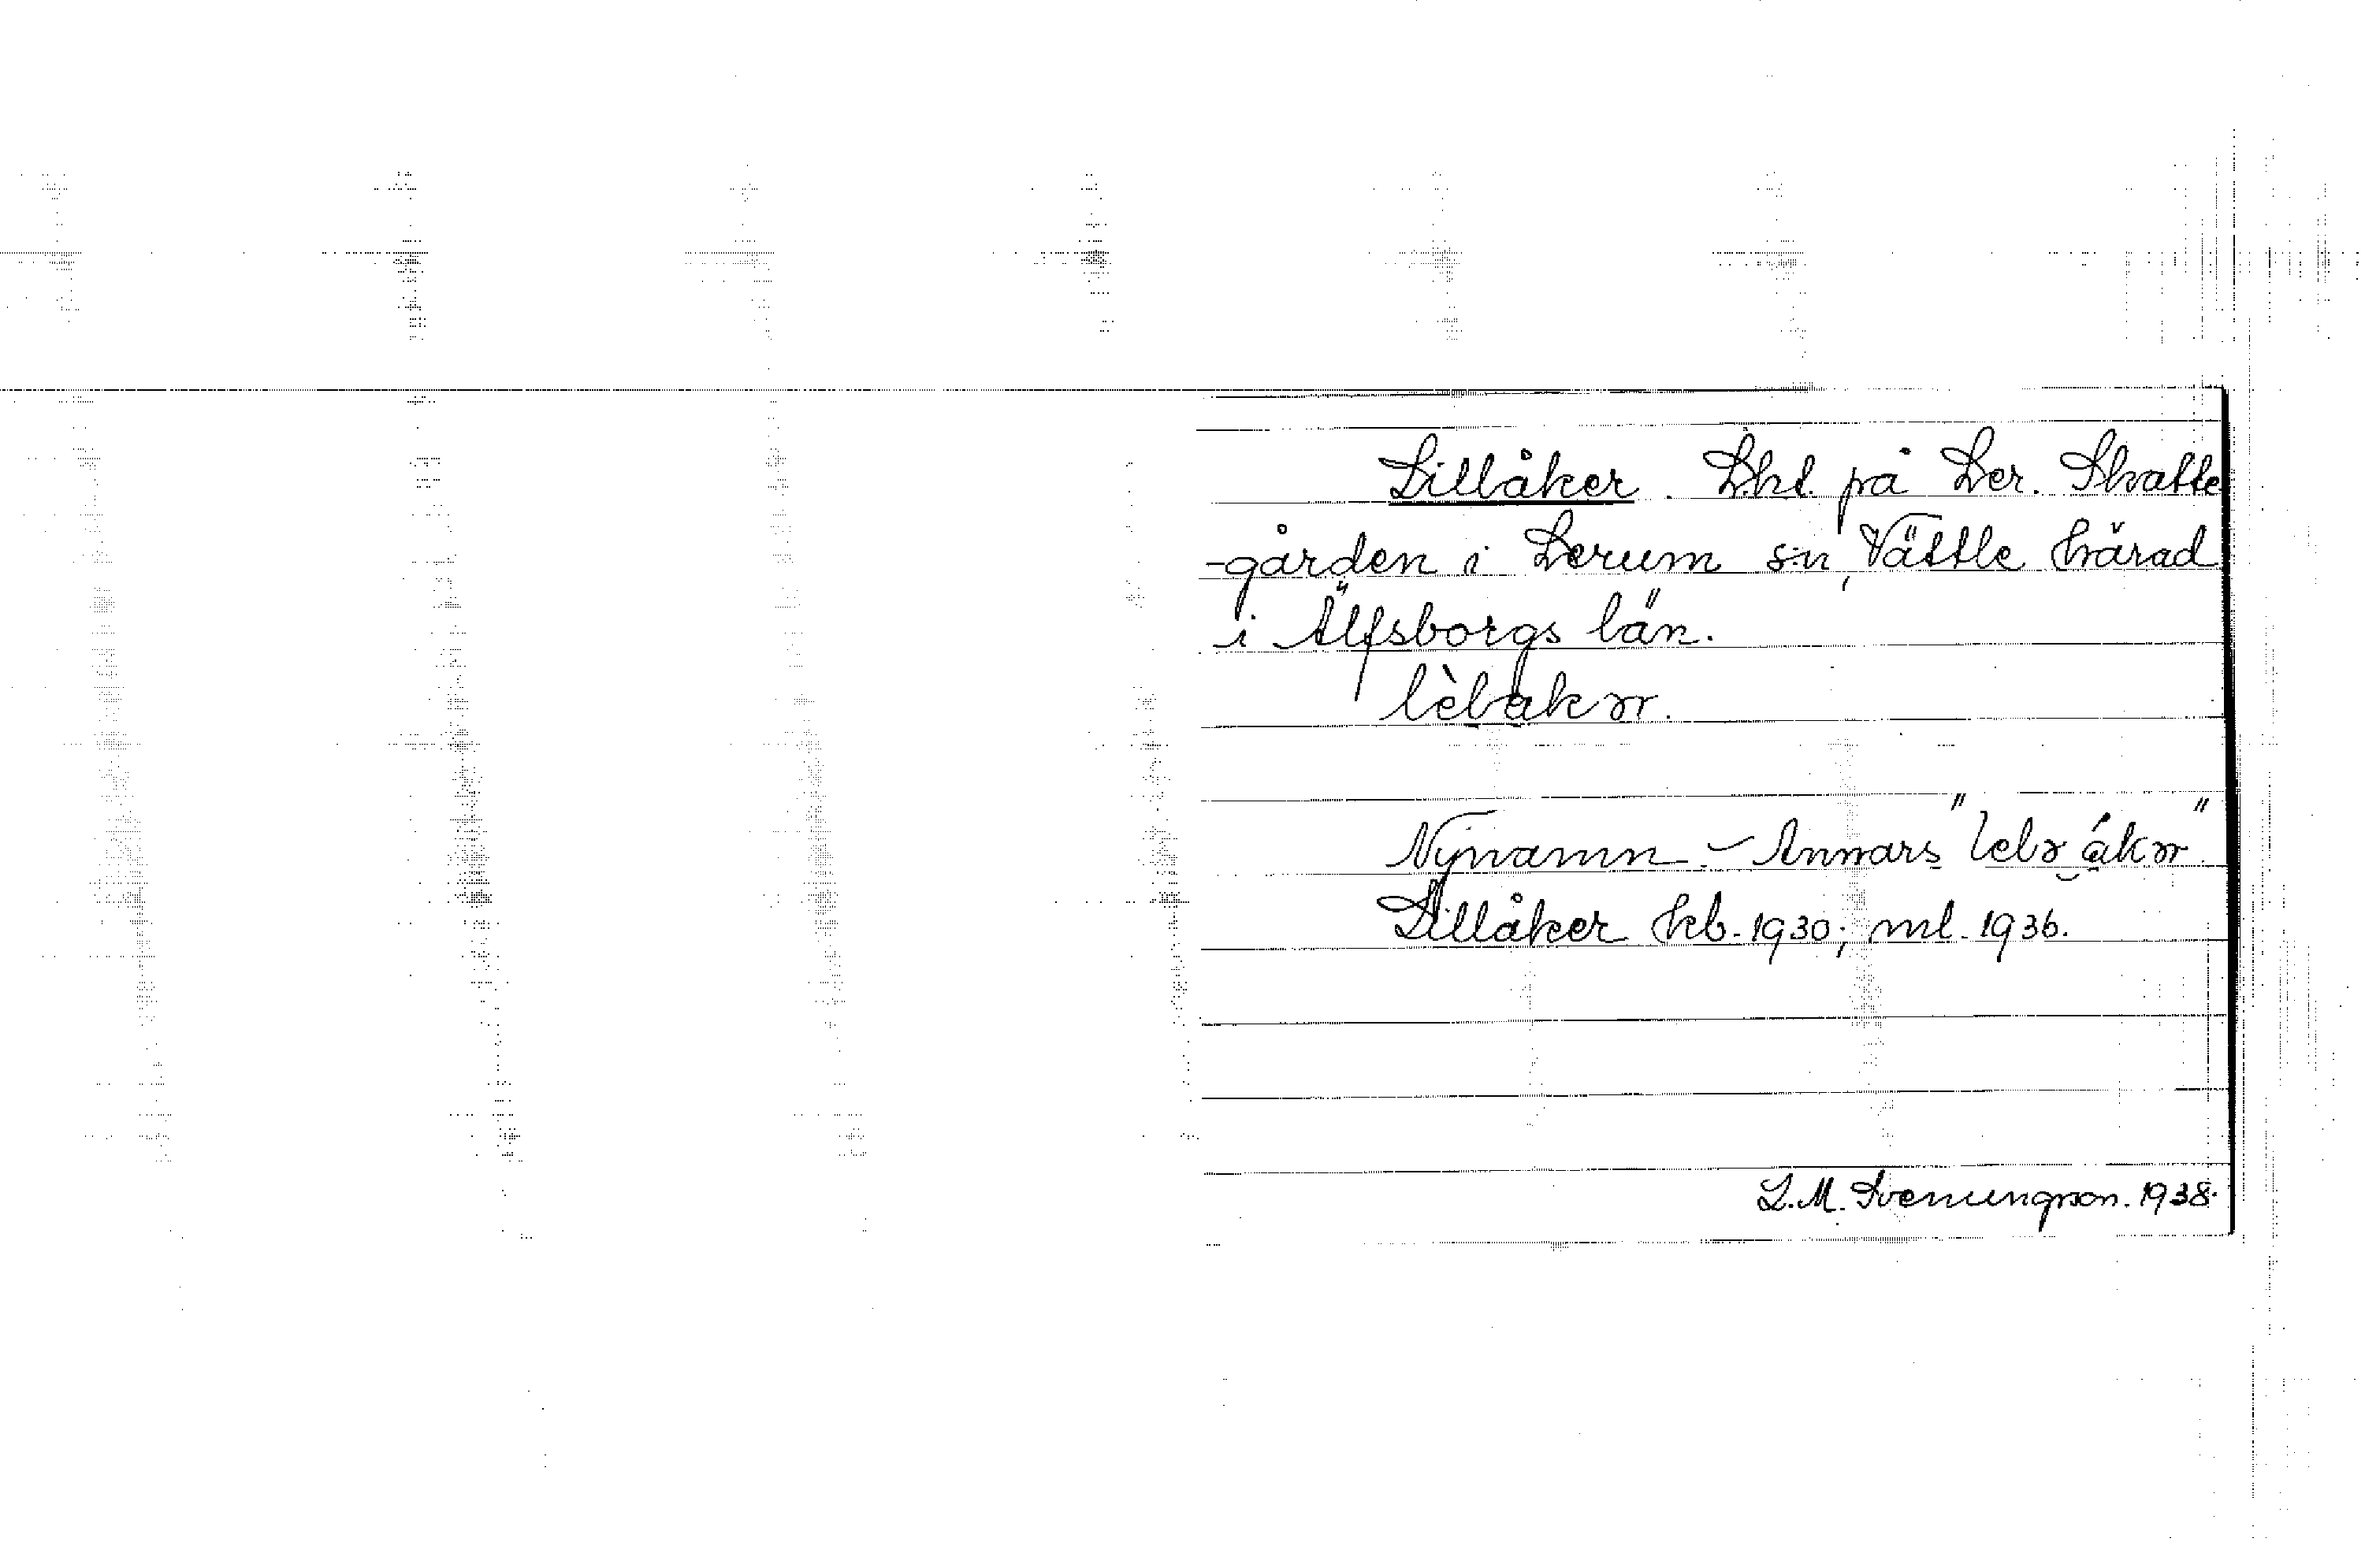 Lillåker. Lht. på Ler. Skatte
-gården i Lerum sn, Vättle härad
i Älfsborgs län.
lèlakər.
Nynamn. - Annars "lelə ákər".
Lillåker kb. 1930; ml. 1936.
L.M. Svenungson. 1938.